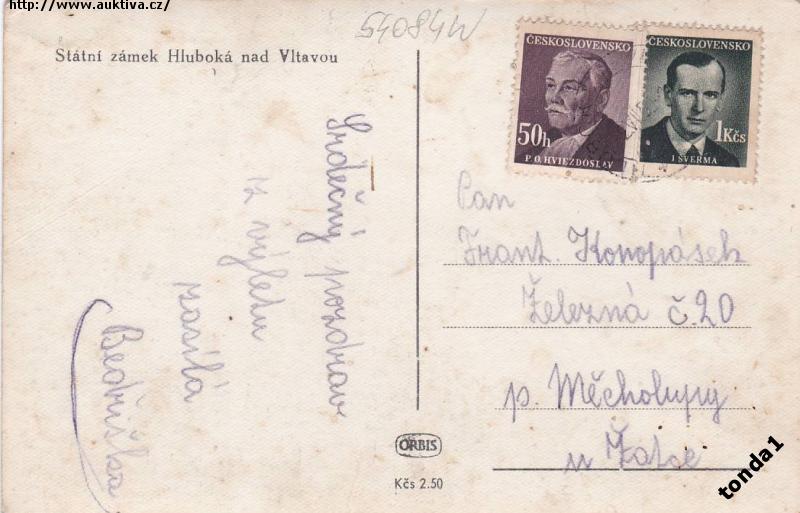 http://www.auktiva.cz/
54084W
Státní zámek Hluboká nad Vltavou
ČESKOSLOVENSKO
50h
P. O. HVIEZDOSLAV
ČESKOSLOVENSKO
1Kčs
J. ŠVERMA
Srdečný pozdrav
z výletu
zasílá
Bedřiška
Pan
Frant. Konopásek
Železná č. 20
p. Měcholupy
u Žatce
ORBIS
Kčs 2.50
tonda1